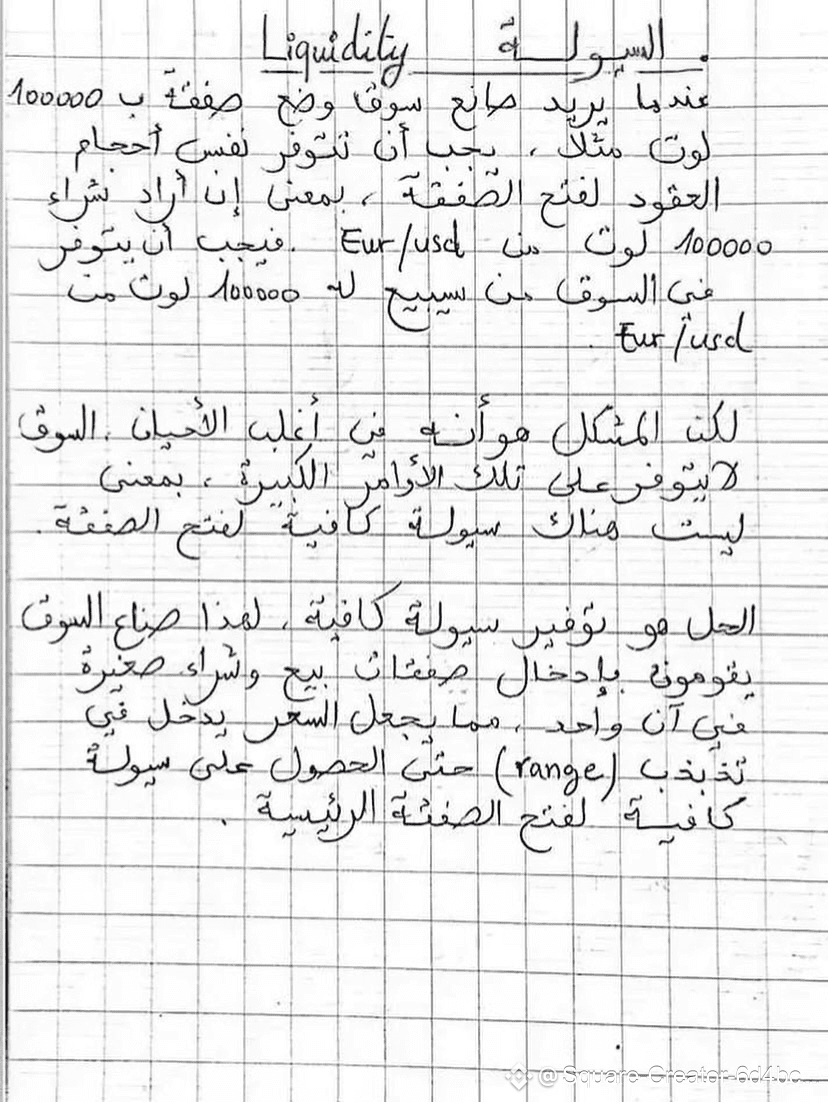 السيولة Liquidity
عندما يريد صانع سوق وضع صفقة ب 100000
لوت مثلا، يجب أن تتوفر نفس أحجام
العقود لفتح الصفقة، بمعنى إن أراد شراء
100000 لوت من Eur/usd. فيجب أن يتوفر
في السوق من سيبيع له 100000 لوت من
Eur/usd.
لكن المشكل هو أنه في أغلب الأحيان، السوق
لا يتوفر على تلك الأوامر الكبيرة، بمعنى
ليست هناك سيولة كافية لفتح الصفقة.
الحل هو توفير سيولة كافية، لهذا صناع السوق
يقومون بإدخال صفقات بيع وشراء صغيرة
في آن واحد، مما يجعل السعر يدخل في
تذبذب (range) حتى الحصول على سيولة
كافية لفتح الصفقة الرئيسية.
@Square-Creator-6d4bc